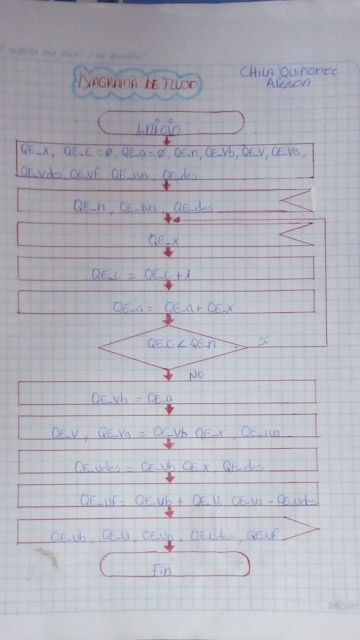 DIAGRAMA DE FLUJO
CHILA QUIÑONEZ
ALISSON
Inicio
QE_x, QE_c=0, QE_a=0, QE_n, QE_Vb, QE_V, QE_Va,
QE_Vdes, QE_Vf, QE_iva, QE_des
QE_n, QE_iva, QE_des
QE_x
QE_c = QE_c+1
QE_a= QE_a+QE_x
QE_c<QE_n
Si
NO
QE_Vb = QE_a
QE_V, QE_Va = QE_Vb QE_x, QE_iva
QE_Vdes = QE_Vb QE_x, QE_des
QE_Vf= QE_Vb + QE_V, QE_Va - QE_Vdes
QE_Vb, QE_V, QE_Va, QE_Vdes, QE_Vf
Fin